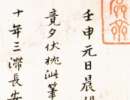 壬申元日晨
竟夕伏枕汕筆
十年三滯長安